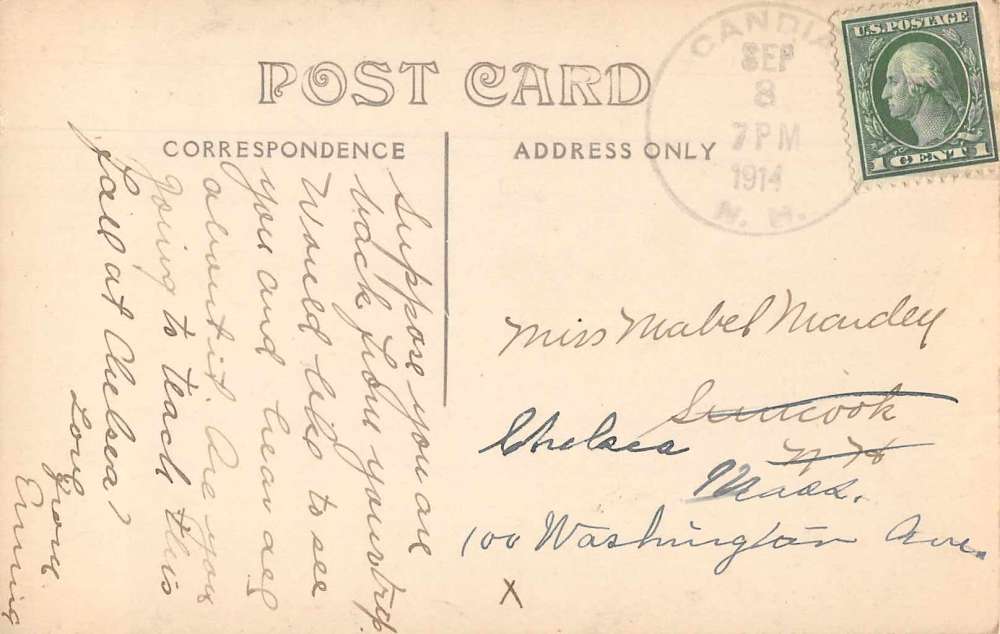 POST CARD
CORRESPONDENCE
ADDRESS ONLY
CANDIA
SEP
8
7 PM
1914
N. H.
U.S. POSTAGE
1 CENT 1
Suppose you are
back from your trip.
Would like to see
you and hear all
about it. Are you
going to teach this
fall at Chelsea?
Love
from
Miss Mabel
Suncook
N H
Chelsea
Mass.
100 Washington Ave.
X